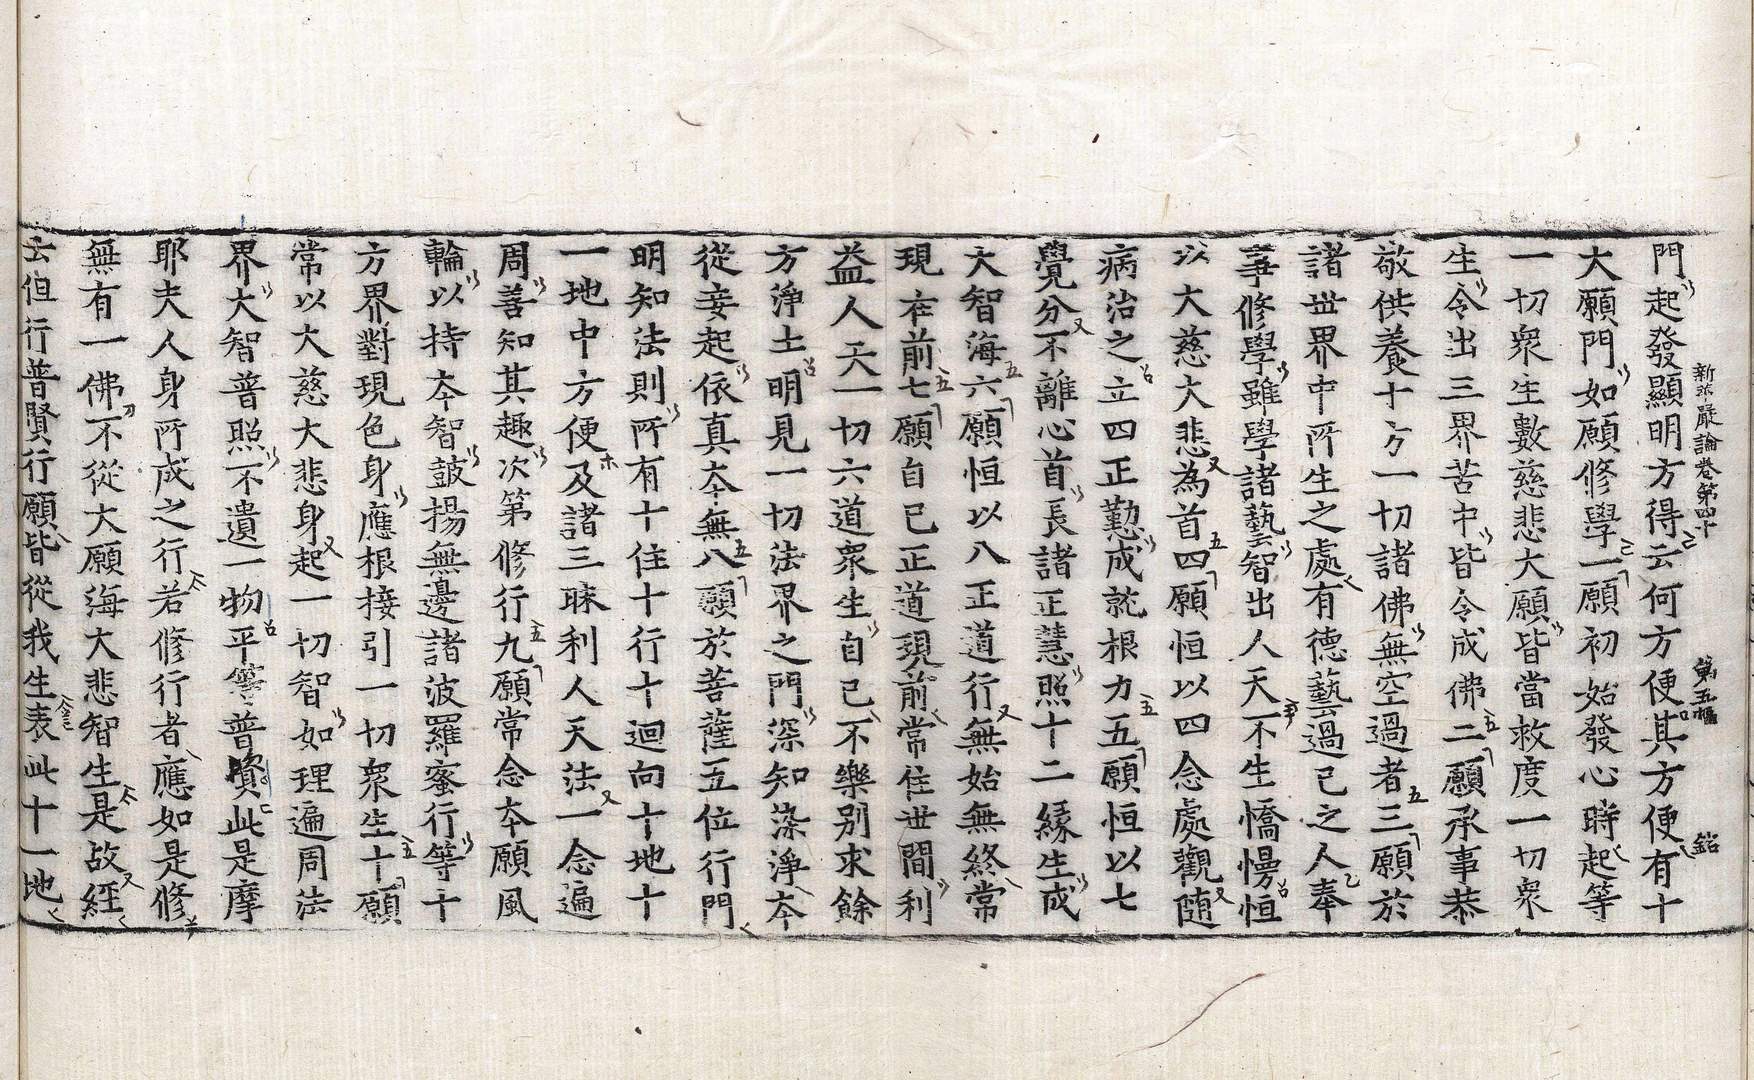 新華嚴論卷第四十 第五幅 銘
門起發顯明方得云何方便其方便有十
大願門如願修學一願初始發心時起等
一切衆生數慈悲大願皆當救度一切衆
生令出三界苦中皆令成佛二願承事恭
敬供養十方一切諸佛無空過者三願於
諸世界中所生之處有德藝過已之人奉
事修學雖學諸藝智出人天不生憍慢恒
以大慈大悲為首四願恒以四念處觀随
病治之立四正勤成就根力五願恒以七
覺分不離心首長諸正慧照十二緣生成
大智海六願恒以八正道行無始無終常
現在前七願自已正道現前常住世間利
益人天一切六道衆生自已不樂別求餘
方淨土明見一切法界之門深知染淨夲
從妄起依真夲無八願於菩薩五位行門
明知法則所有十住十行十迴向十地十
一地中方便及諸三昧利人天法一念遍
周善知其趣次第修行九願常念夲願風
輪以持夲智鼓揚無邊諸波羅蜜行等十
方界對現色身應根接引一切衆生十願
常以大慈大悲身起一切智如理遍周法
界大智普照不遺一物平等普資此是摩
耶夫人身所成之行若修行者應如是修
無有一佛不從大願海大悲智生是故經
云但行普賢行願皆從我生表此十一地